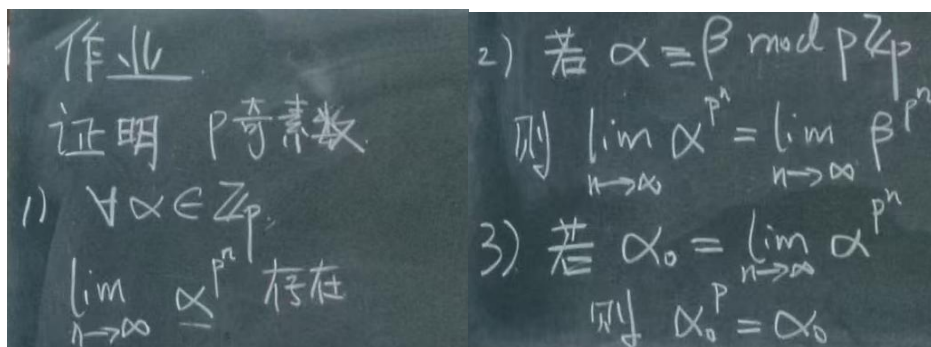 作业
证明 p奇素数
1) ∀α∈ℤₚ,
lim_{n→∞} α^{pⁿ} 存在
2) 若 α≡β mod pℤₚ
则 lim_{n→∞} α^{pⁿ} = lim_{n→∞} β^{pⁿ}
3) 若 α₀ = lim_{n→∞} α^{pⁿ}
则 α₀^p = α₀